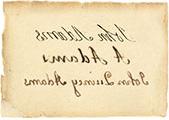 John Adams
A Adams
John Quincy Adams